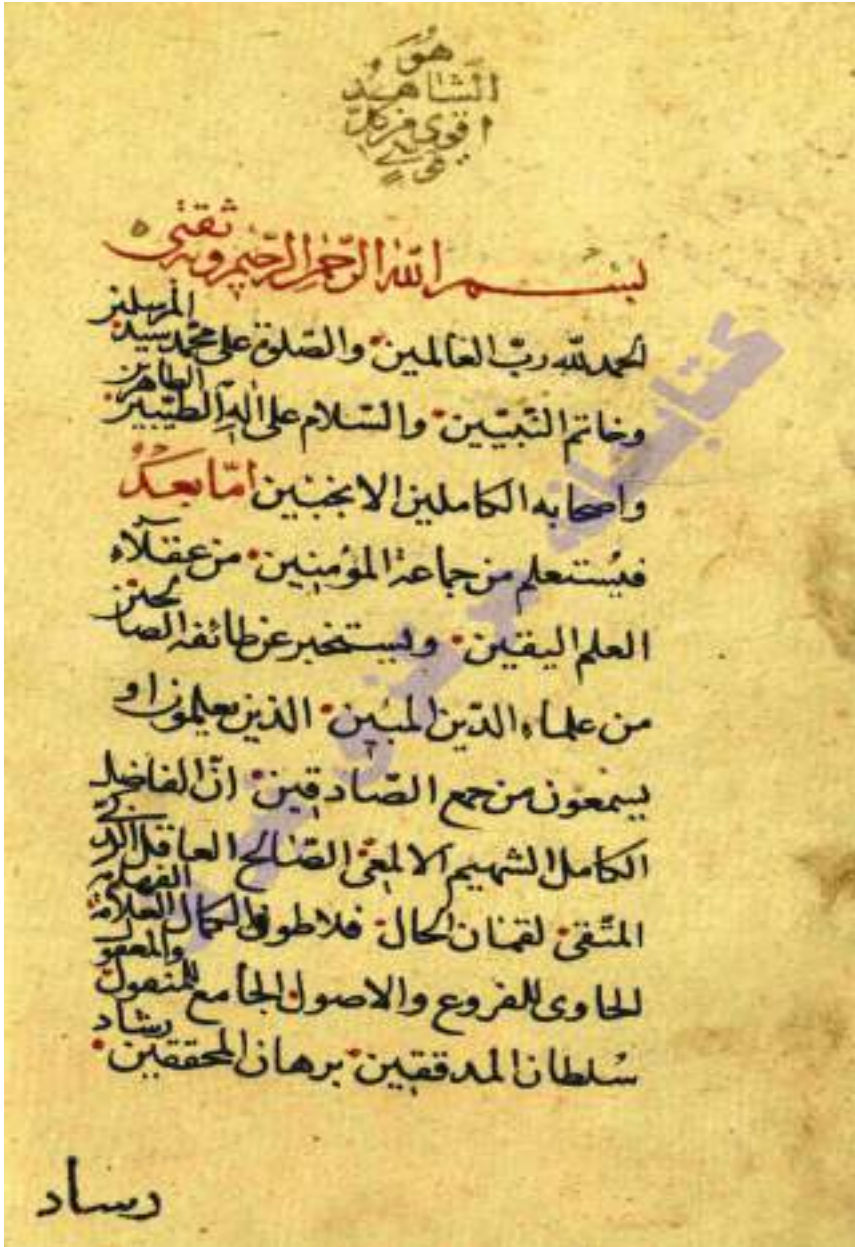 هو
الشاهد
اقوى من كلّ
قوىّ
بسم الله الرّحمن الرّحيم وبه ثقتى
الحمد لله ربّ العالمين والصّلوة على محمّد سيد المرسلين
وخاتم النّبيّين والسّلام على آله الطيّبين الطاهرين
واصحابه الكاملين الانجبين امّا بعدُ
فيُستعلم من جماعة المؤمنين من عقلآء
العلم اليقين وليستخبر عن طائفه الصالحين
من علماء الدّين المبين الذين يعلمون او
يسمعون من جمع الصّادقين انّ الفاضل
الكامل الشهيم الالمعىّ الصّالح العاقل الزكى
المتّقى لقمان الحال فلاطون الكمال العلامة الفهامة
الحاوى للفروع والاصول الجامع للمنقول والمعقول
سُلطان المدققين برهان المحققين رشاد
رساد
كتابخانه